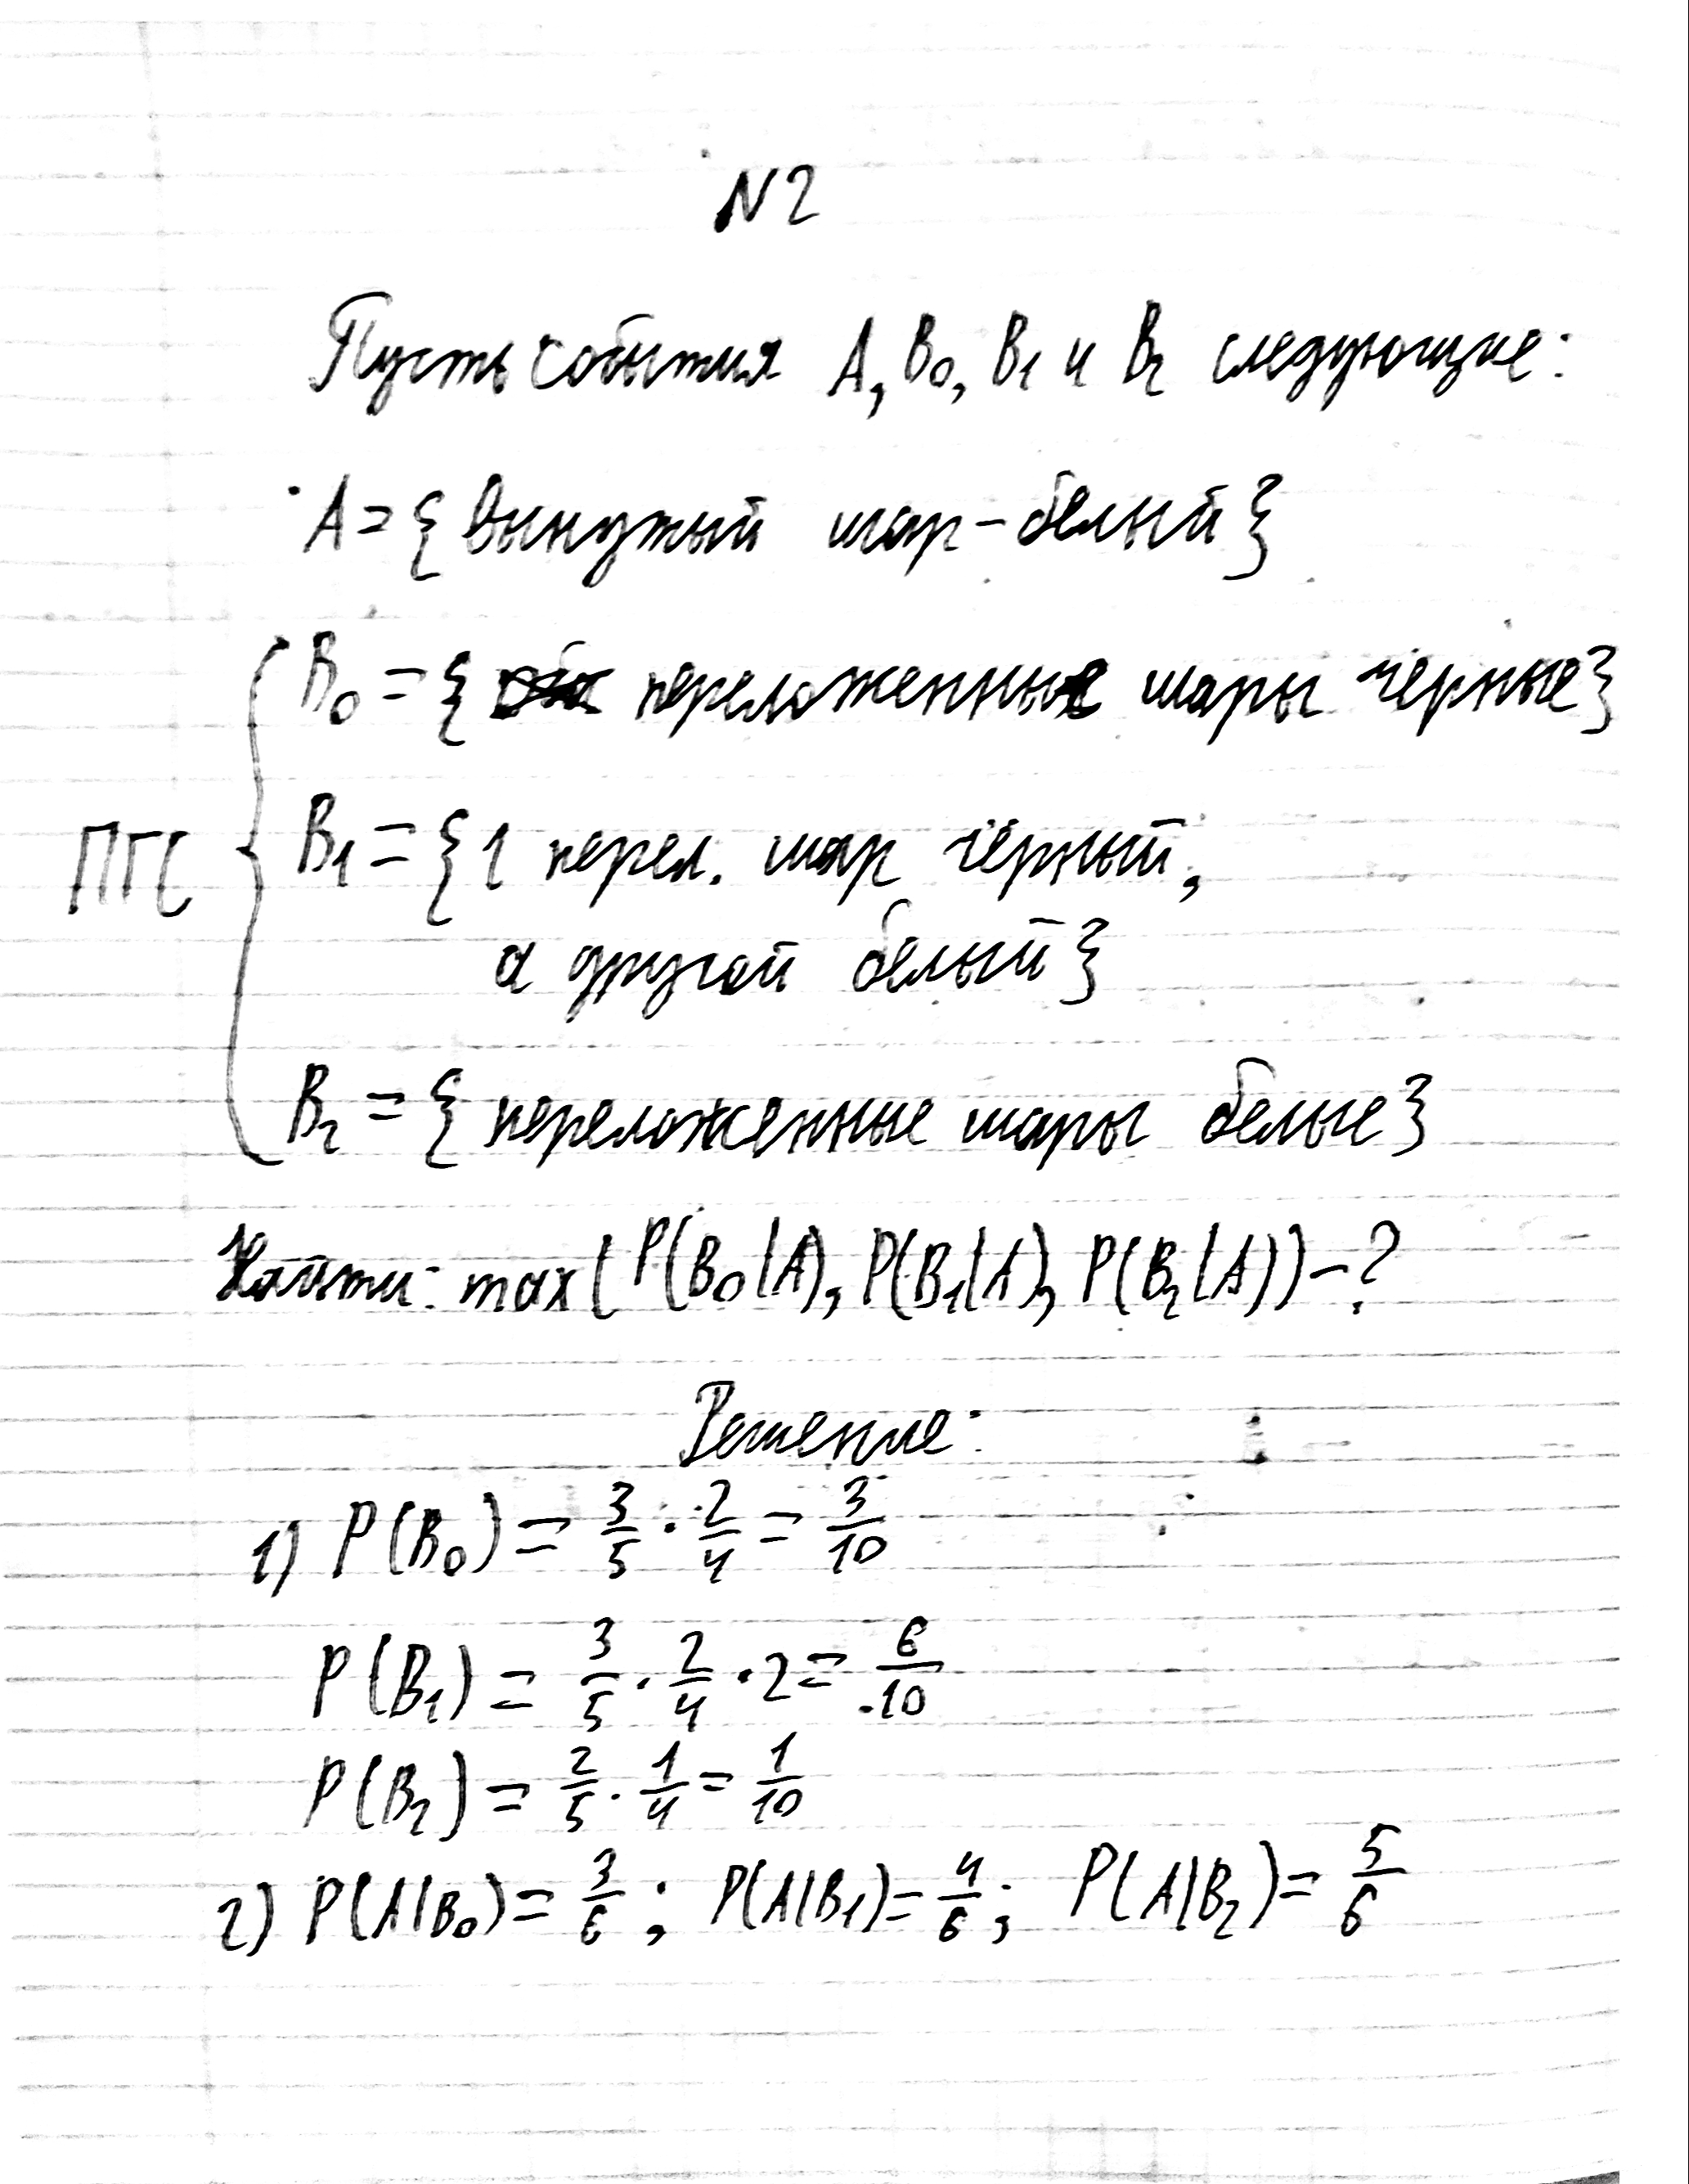 N2
Пусть события A, B₀, B₁ и B₂ следующие:
A = { вынутый шар - белый }
B₀ = { переложенные шары черные }
ПГС
B₁ = { 1 перел. шар чёрный,
а другой белый }
B₂ = { переложенные шары белые }
Найти: max(P(B₀|A), P(B₁|A), P(B₂|A)) - ?
Решение:
1) P(B₀) = 3/5 · 2/4 = 3/10
P(B₁) = 3/5 · 2/4 · 2 = 6/10
P(B₂) = 2/5 · 1/4 = 1/10
2) P(A|B₀) = 3/6 ; P(A|B₁) = 4/6 ; P(A|B₂) = 5/6